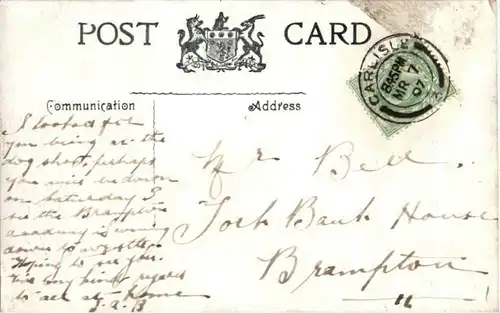 POST CARD
CARLISLE
8.45PM
MR 7
07
Communication
Address
I looked for
you being at the
dog show, perhaps
you will be down
on Saturday I
see the Brampton
academy is
down to
Hoping to see you.
kind regards
to all at home
Mr Bell
Bank House
Brampton